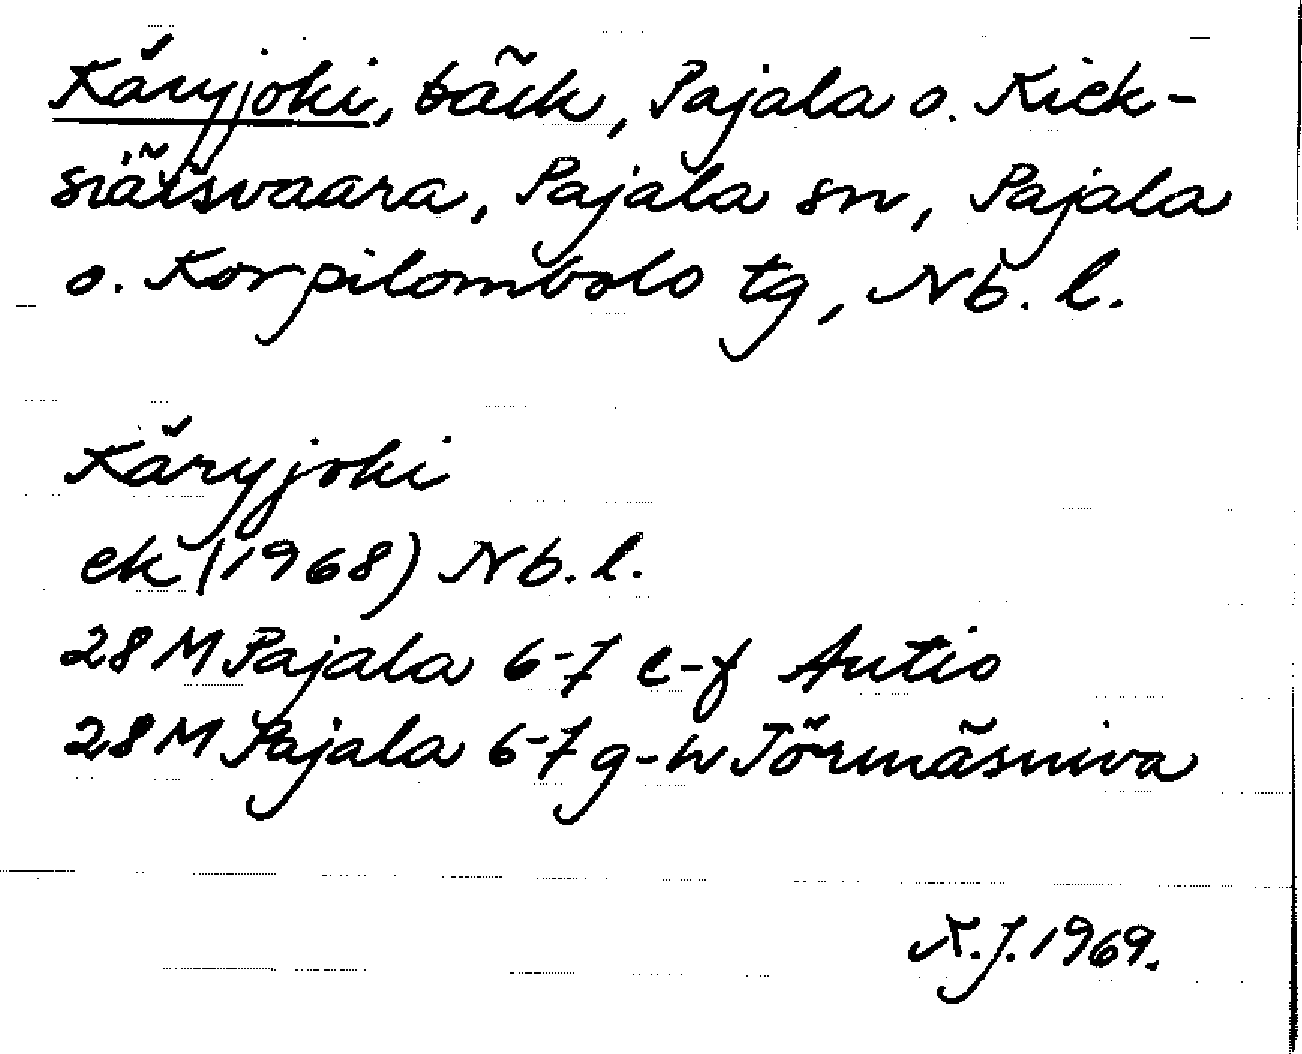 Käryjoki, bäck, Pajala o. Kiek-
siäisvaara, Pajala sn, Pajala
o. Korpilombolo tg, Nb. l.
Käryjoki
ek (1968) Nb. l.
28 M Pajala 6-7 e-f Autio
28 M Pajala 6-7 g-h Jörmäsniva
K.J. 1969.